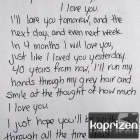 I love you
I'll love you tomorrow, and the
next day, and even next week.
In 4 months I will love you,
just like I loved you yesterday.
40 years from now, I'll run my
hands through my grey hair and
smile at the thought of how much
I love you.
I just hope you'll
through all the time
koprizen